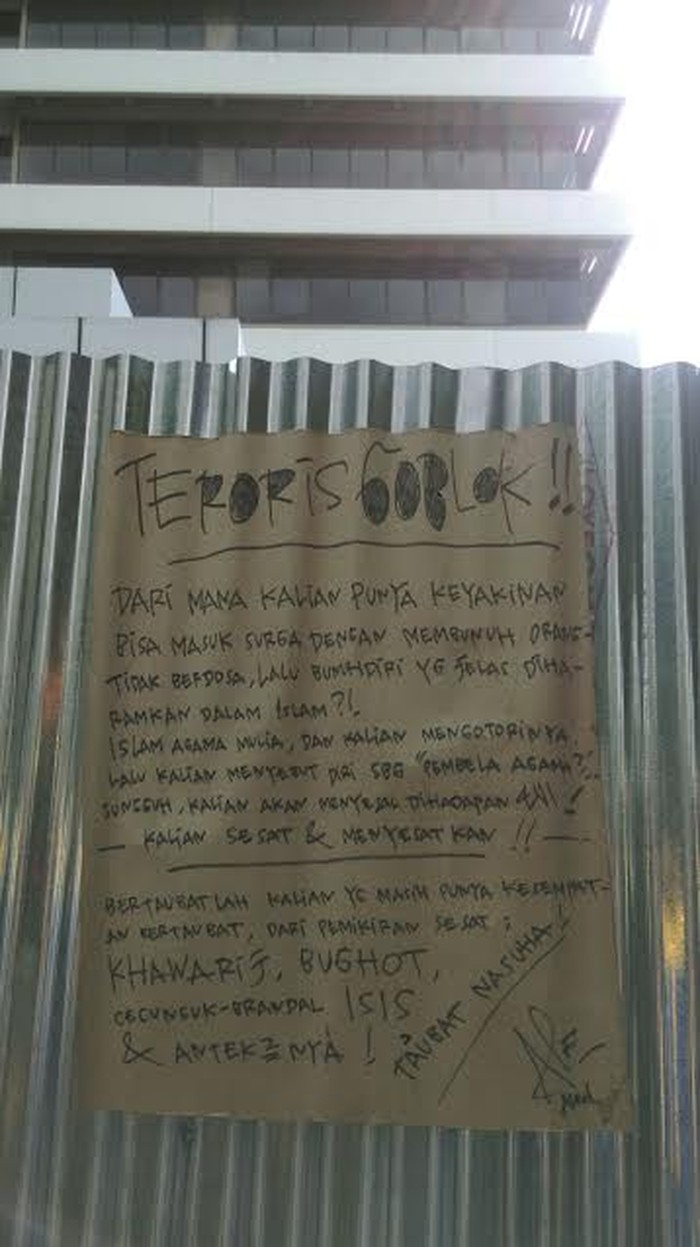 TERORIS GOBLOK!!
DARI MANA KALIAN PUNYA KEYAKINAN
BISA MASUK SURGA DENGAN MEMBUNUH ORANG-
TIDAK BERDOSA, LALU BUMHDIRI YG JELAS DIHA-
RAMKAN DALAM ISLAM?!.
ISLAM AGAMA MULIA, DAN KALIAN MENGOTORINYA.
LALU KALIAN MENYEBUT DIRI SBG "PEMBELA AGAMA?".
SUNGGUH, KALIAN AKAN MENYESAL DIHADAPAN !
— KALIAN SESAT & MENYESATKAN !! —
BERTAUBATLAH KALIAN YG MASIH PUNYA KESEMPAT-
AN BERTAUBAT, DARI PEMIKIRAN SESAT :
KHAWARIJ, BUGHOT,
CECUNGUK-BRANDAL ISIS
& ANTEK2NYA !
TAUBAT NASUHA!